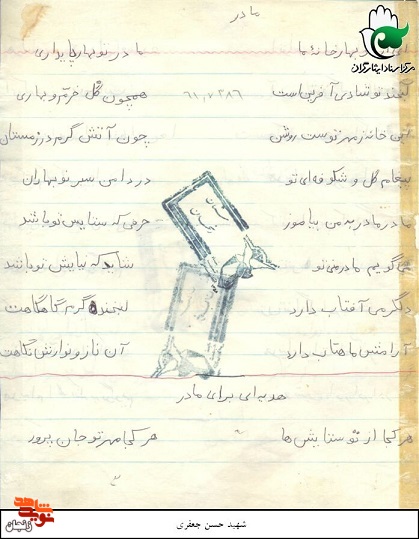 مادر
مرکز اسناد ایثارگران
بهار خانهٔ ما مادر تو بهار پایداری
لبخند تو شادی آفرین است همچون گل خرم و بهاری
۶۱،۷۳۸۶
این خانه ز مهر توست روشن چون آتش گرم در زمستان
پیغام گل و شکوفه‌ای تو در دامن سبز نوبهاران
مادر مادر به من بیاموز حرفی که ستایس تو باشد
می‌گویم مادر منی تو شاید که نیایش تو باشد
دلگرمی آفتاب دارد لبخند گرم گاهگاهت
آرامش ماهتاب دارد آن ناز و نوازش نگاهت
هدیه‌ای برای مادر
هر کجا از تو ستایش‌ها هر کجا مهر تو جان پرور
نوید شاهد
زنجان
شهید حسن جعفری